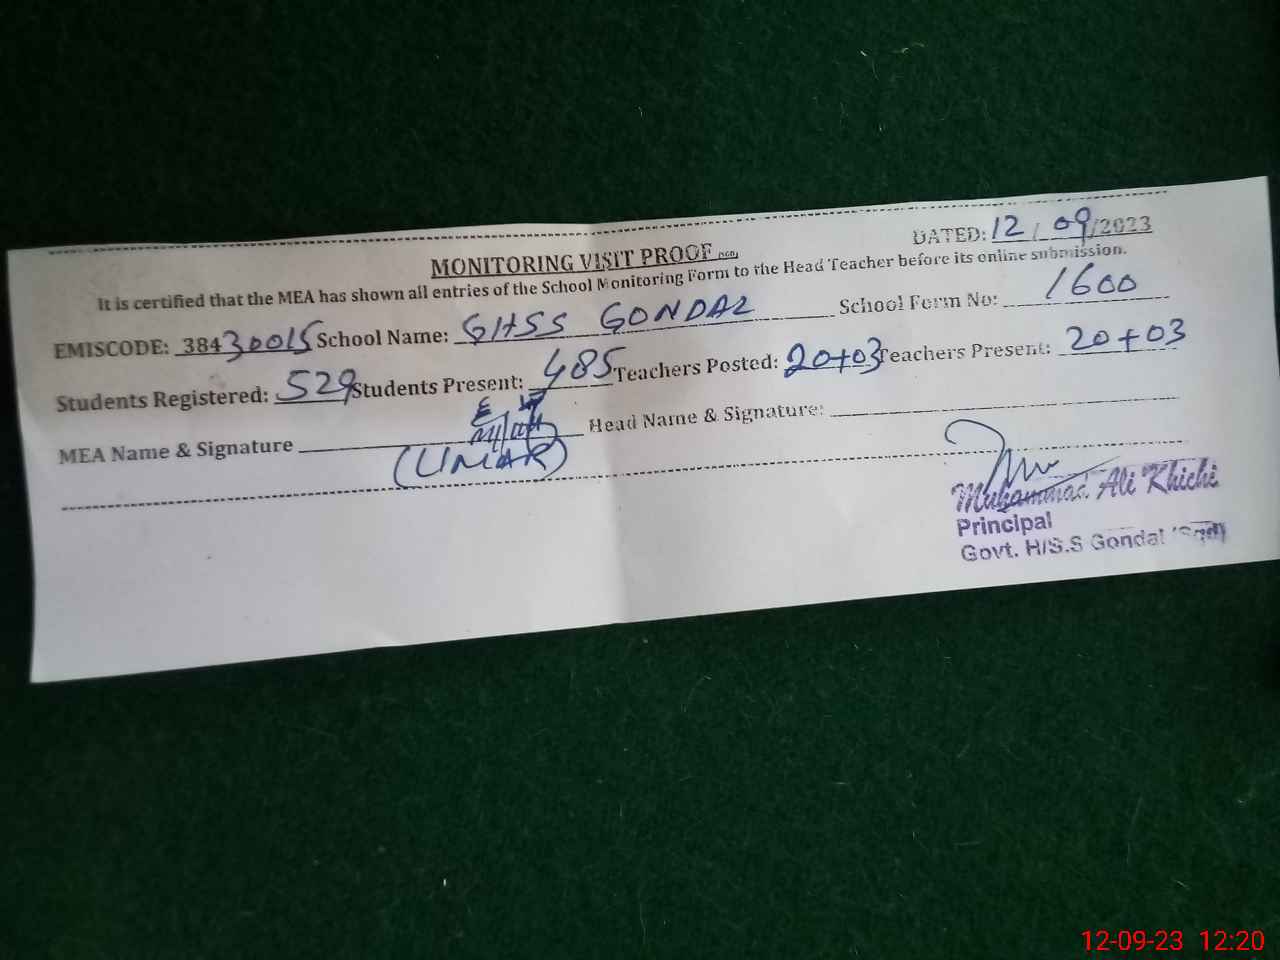 DATED: 12 / 09/2023
MONITORING VISIT PROOF
It is certified that the MEA has shown all entries of the School Monitoring Form to the Head Teacher before its online submission.
EMISCODE: 38430015 School Name: GHSS GONDAL School Form No: 1600
Students Registered: 529 Students Present: 485 Teachers Posted: 20+03 Teachers Present: 20+03
MEA Name & Signature Head Name & Signature:
(UMAR)
Muhammad Ali Khichi
Principal
Govt. H/S.S Gondal
12-09-23 12:20